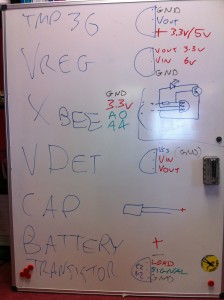 TMP 36
GND
VOUT
+ 3.3V/5V
VREG
VOUT 3.3V
VIN 6V
GND
XBEE
GND
3.3V
A0
A4
V DET
(GND)
VIN
VOUT
CAP
+
BATTERY
+
TRANSISTOR
LOAD
SIGNAL
GND